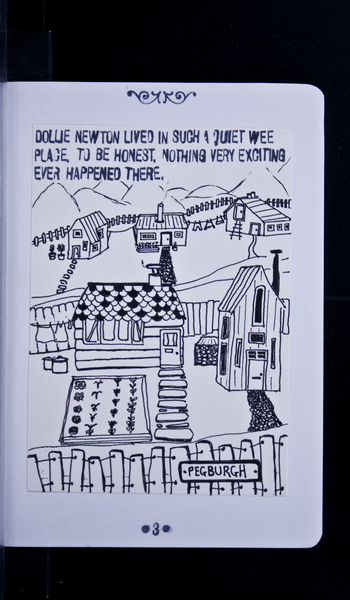 DOLLIE NEWTON LIVED IN SUCH A QUIET WEE
PLACE, TO BE HONEST, NOTHING VERY EXCITING
EVER HAPPENED THERE.
PEGBURGH
3